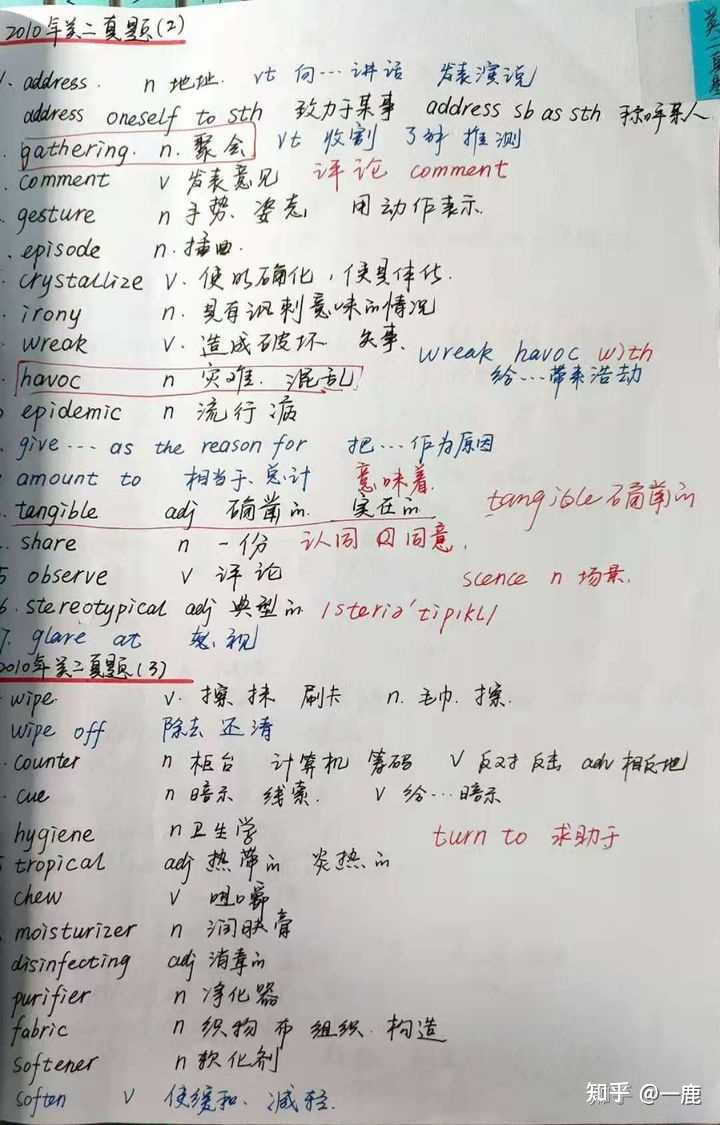 2010年英二真题(2)
1. address. n 地址. vt 向…讲话 发表演说
address oneself to sth 致力于某事 address sb as sth 称呼某人
gathering. n. 聚会 vt 收割 了解 推测
comment v 发表意见 评论 comment
gesture n 手势. 姿态 用动作表示.
episode n. 插曲.
crystallize v. 使明确化, 使具体化.
irony n. 具有讽刺意味的情况
wreak v. 造成破坏 矢事. wreak havoc with
havoc n 灾难. 混乱 给…带来浩劫
epidemic n 流行病
give … as the reason for 把…作为原因
amount to 相当于、总计 意味着.
tangible adj 确凿的 实在的 tangible 确凿的
share n 一份 认同 同意.
5 observe v 评论 scence n 场景.
6. stereotypical adj 典型的 /steriə'tipikl/
7. glare at 怒视
2010年英二真题(3)
wipe v. 擦 抹 刷卡 n. 毛巾. 擦.
wipe off 除去 还清
counter n 柜台 计算机 筹码 v 反对 反击 adv 相反地
cue n 暗示 线索. v 给…暗示
hygiene n 卫生学 turn to 求助于
tropical adj 热带的 炎热的
chew v 咀嚼
moisturizer n 润肤膏
disinfecting adj 消毒的
purifier n 净化器
fabric n 织物 布 组织. 构造
softener n 软化剂
soften v 使缓和. 减轻.
知乎 @一鹿